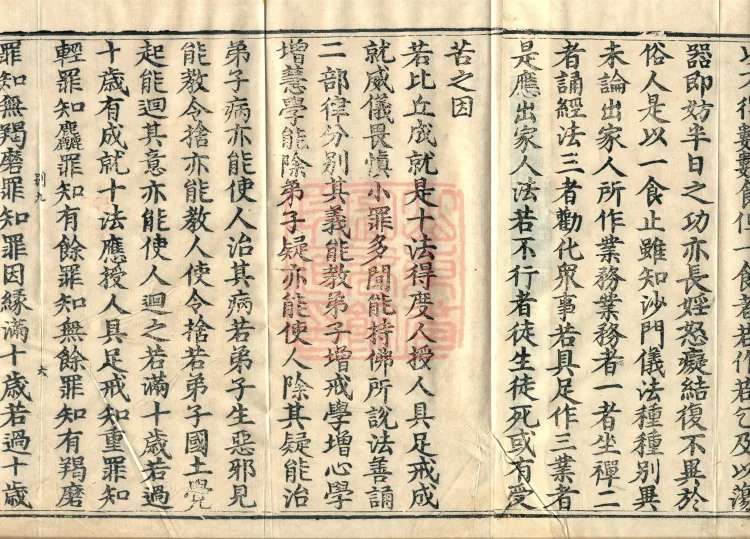 器即妨半日之功亦長婬怒癡結復不異於
俗人是以一食止雖知沙門儀法種種別異
未論出家人所作業務業務者一者坐禪二
者誦經法三者勸化衆事若具足作三業者
是應出家人法若不行者徒生徒死或有受
苦之因
若比丘成就是十法得度人授人具足戒成
就威儀畏慎小罪多聞能持佛所說法善誦
二部律分別其義能教弟子增戒學增心學
增慧學能除弟子疑亦能使人除其疑能治
弟子病亦能使人治其病若弟子生惡邪見
能教令捨亦能教人使令捨若弟子國土覺
起能迴其意亦能使人迴之若滿十歲若過
十歲有成就十法應授人具足戒知重罪知
輕罪知麤罪知有餘罪知無餘罪知有羯磨
別九
六
罪知無羯磨罪知罪因緣滿十歲若過十歲